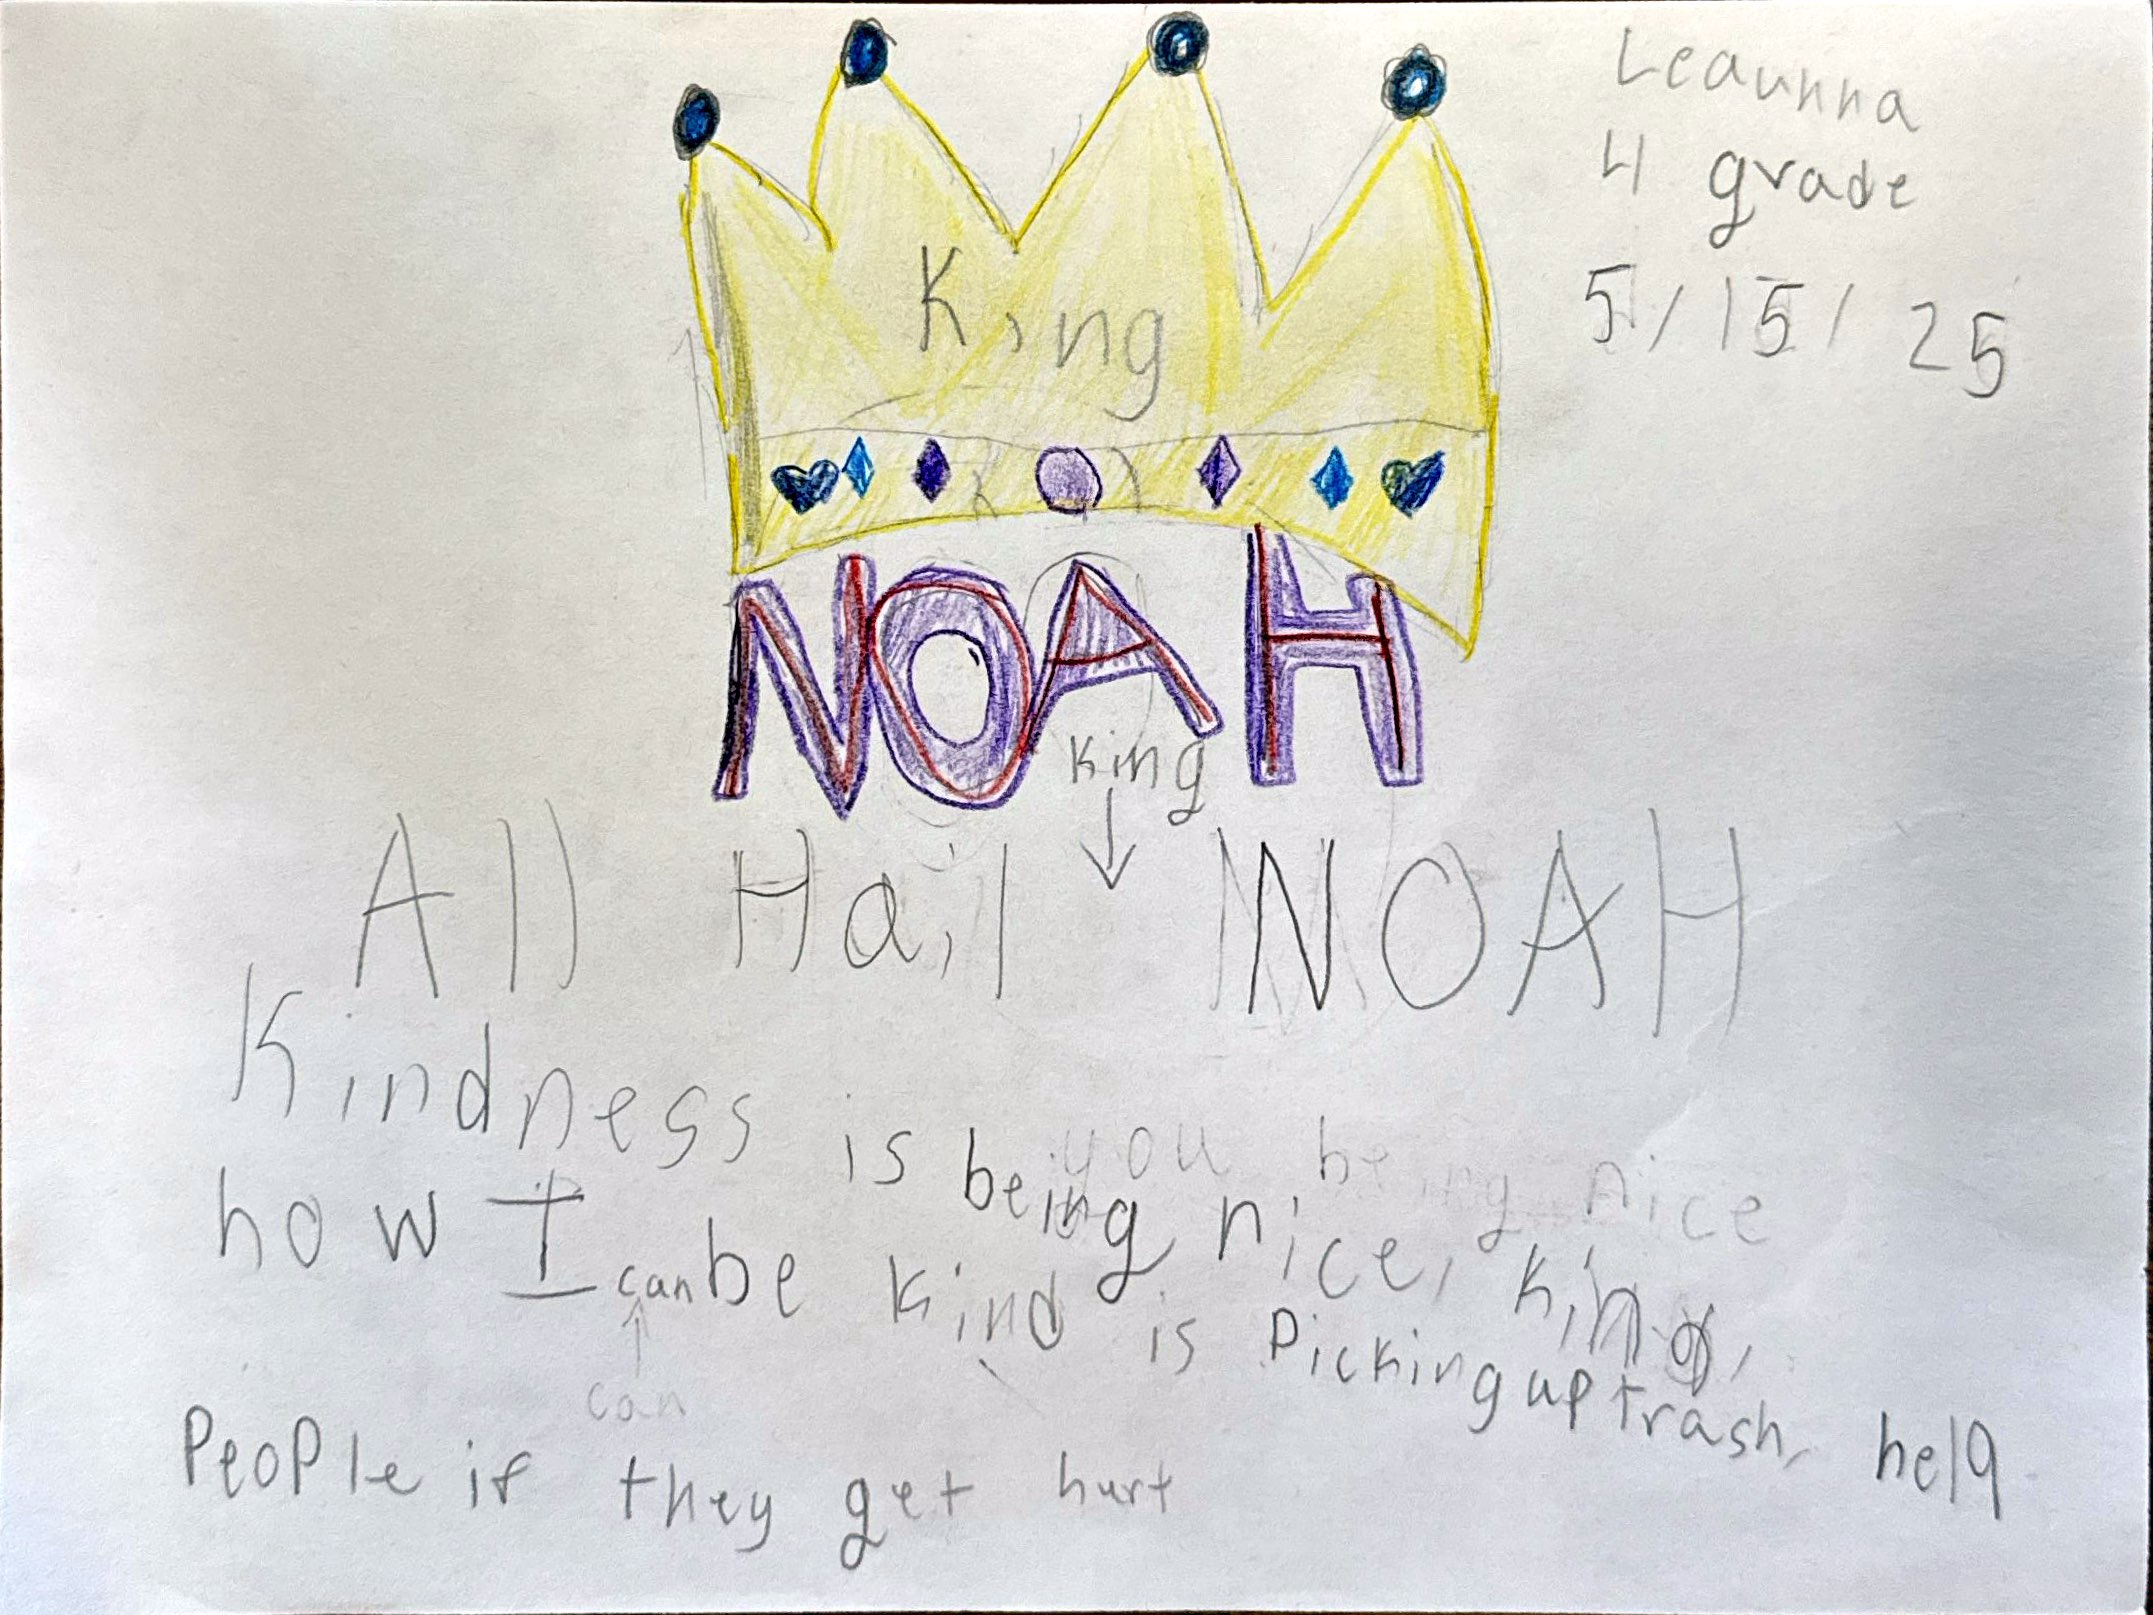 Leaunna
4 grade
5/15/25
King
NOAH
king
All Hail NOAH
Kindness is being nice, kind,
you being nice
how I can be kind is Picking up trash, help
can
People if they get hurt